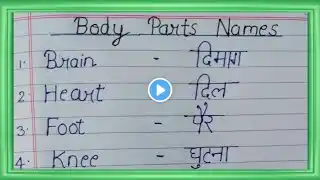 Body Parts Names
1. Brain - दिमाग
2. Heart - दिल
3. Foot - पैर
4. Knee - घुटना